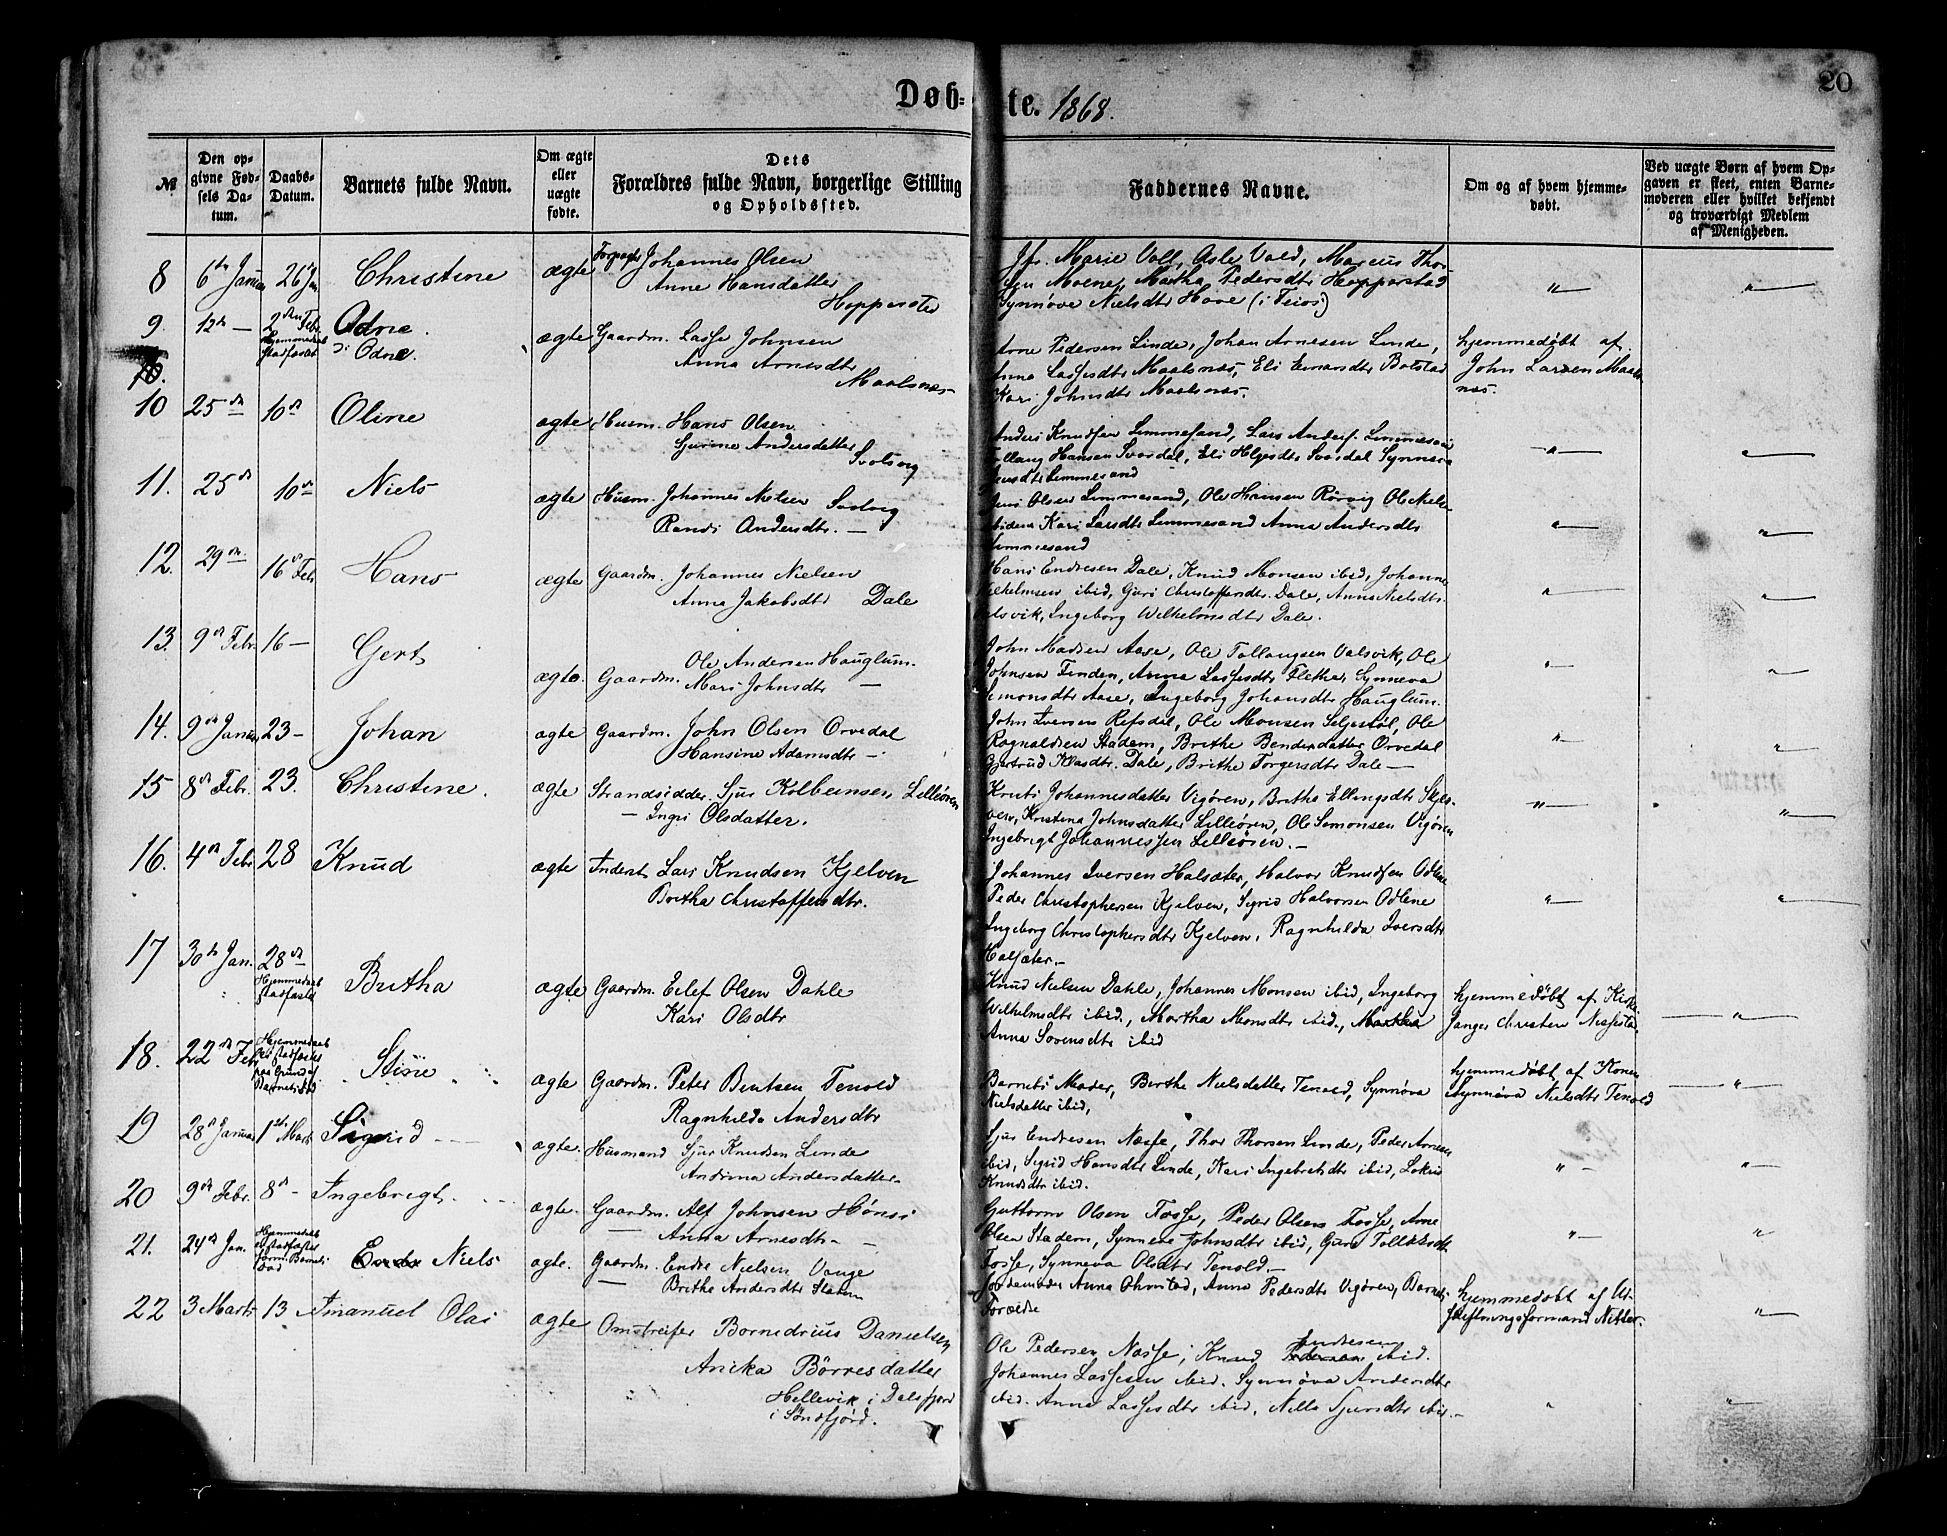 20
Døb= te. 1868.
№
Den op-
givne Fød-
sels Da-
tum.
Daabs-
Datum.
Barnets fulde Navn.
Om ægte
eller
uægte
fødte.
Dets
Forældres fulde Navn, borgerlige Stilling
og Opholdssted.
Faddernes Navne.
Om og af hvem hjemme-
døbt.
Ved uægte Børn af hvem Op-
gaven er skeet, enten Barne-
moderen eller hvilket bekjendt
og troværdigt Medlem
af Menigheden.
8 6te Januar 26 Jan Christine ægte Johannes Olsen
Anne Hansdatter
Hopperstad
Jfr. Marie Voll, Asle Vold, Marcus Thor-
Moene, Martha Pedersdtr Hopperstad
Synnøve Nielsdtr Hove (i Feios)
9. 12te — 2den Febr. Hjemmedaab stadfæstet Odne.
ɔ: Odne.
ægte Gaardm. Lasse Johnsen
Anna Arnesdtr
Maalsnæs
Arne Pedersen Linde, Johan Arnesen Linde,
Anna Lassesdtr Maalsnæs, Eli Bolstad
Kari Johnsdtr Maalsnæs.
hjemmedøbt af
John Larsen Maals
næs.
10 25de 10de Oline ægte Husm. Hans Olsen
Andersdatter
Svolsvig
Anders Knudsen Limmesand, Lars Anders. Limmesand
Hansen Svardal, Eli Helgesdtr Svardal Synneva
Limmesand
11. 25de 10de Niels ægte Husm. Johannes Nielsen
Randi Andersdtr. —
Jens Olsen Limmesand, Ole Hansen Rørvig Ole Niels
Kari Larsdtr Limmesand Anna Andersdtr
Limmesand
12. 29de 16de Feb Hans ægte Gaardm. Johannes Nielsen
Anna Jakobsdtr Dale
Hans Endresen Dale, Knud Monsen ibid, Johannes
Wilhelmsen ibid, Guri Christoffersdtr. Dale, Anna Nielsdtr.
Valsvik, Ingeborg Wilhelmsdtr Dale.
13. 9de Febr. 16 — Gert ægte. Gaardm. Ole Andersen Hauglum.
Mari Johnsdtr —
John Madsen Aase, Ole Tollaugsen Valsvik, Ole
Johnsen Finden, Anna Lassesdtr Fletha, Synneva
Simonsdtr Aase, Ingeborg Johansdtr Hauglum.
14. 9de Januar 23 — Johan ægte Gaardm. John Olsen Orvedal
Hansine Adamsdtr —
John Iversen Refsdal, Ole Monsen Seljestøl, Ole
Ragnaldsen Stadem, Brithe Bendixdatter Orvedal
Gjertrud Klasdtr. Dale, Brithe Torgersdtr Dale —
15 8de Febr. 23. Christine. ægte Strandsidder. Sjur Kolbeinsen Lilleøren
— Ingri Olsdatter.
Johannesdatter Vigøren, Brithe Ellingsdtr
Kristina Johnsdatter Lilleøren, Ole Simonsen Vigøren
Ingebrigt Johannessen Lilleøren. —
16. 4de Febr 28 Knud ægte Inderst Lars Knudsen Kjelven
Brithe Christoffersdtr.
Johannes Iversen Halsæter, Halvor Knudsen Odlene
Peder Christophersen Kjelven, Sigrid Halvorsen Odlene
Ingeborg Christophersdtr Kjelven, Ragnhilda Iversdtr
Halsæter. —
17 30te Jan. 28de Hjemmedaab stadfæstet Britha ægte Gaardm. Eilef Olsen Dahle
Kari Olsdtr
Knud Nielsen Dahle, Johannes Monsen ibid, Ingeborg
Wilhelmsdtr ibid., Martha Monsdtr ibid., Martha
Anna ibid
hjemmedøbt af Kirke
sanger Christen Nissesta
18. 22de Feb Hjemmedaab ei stadfæstet paa Grund af Barnets Død Stine ægte Gaardm. Peter Bentsen Tenold
Ragnhilda Andersdtr
Barnets Moder, Birthe Nielsdatter Tenold, Synnøva
Nielsdatter ibid,
hjemmedøbt af Konen
Synnøva Nielsdtr Tenold
19 28de Januar 1ste Marts Sigrid ægte. Husmand Sjur Knudsen Linde
Andrina Andersdatter
Sjur Endresen Næsse, Thor Thorsen Linde, Peder Arnesen
ibid, Sigrid Hansdtr Linde, Kari Ingebretsdtr ibid,
Knudsdtr ibid.
20 9de Febr. 8de — Ingebrigt. ægte. Gaardm. Alf Johnsen Hønsi
— Anna Arnesdtr —
Guttorm Olsen Fosse, Peder Olsen Fosse, Arne
Olsen Stadem, Synneve Johnsdtr ibid, Guro
Fosse, Synneva Olsdtr Tenold —
21. 24de Jan. Hjemmedaab ei stadfæstet Barnets Død Endre Niels ægte. Gaardm. Endre Nielsen Vange
— Brithe Andersdtr
Jordemoder Anna Ohnstad, Anna Pedersdtr Vigøren, Barnets
Forældre
hjemmedøbt af Ud-
skiftningsformand Nitter.
22 3 Marts 13 Imanuel Olai ægte Omstreifer Bornedrius Danielsen
Anika Børresdatter
Hellevik i Dalsfjord
i Søndfjord.
Ole Pedersen Næsse, Knud Pedersen Endresen ibid.
Johannes Lassesen ibid. Synnøva Andersdtr
ibid. Anna Lassesdtr ibid, Nille Sjursdtr ibid. —